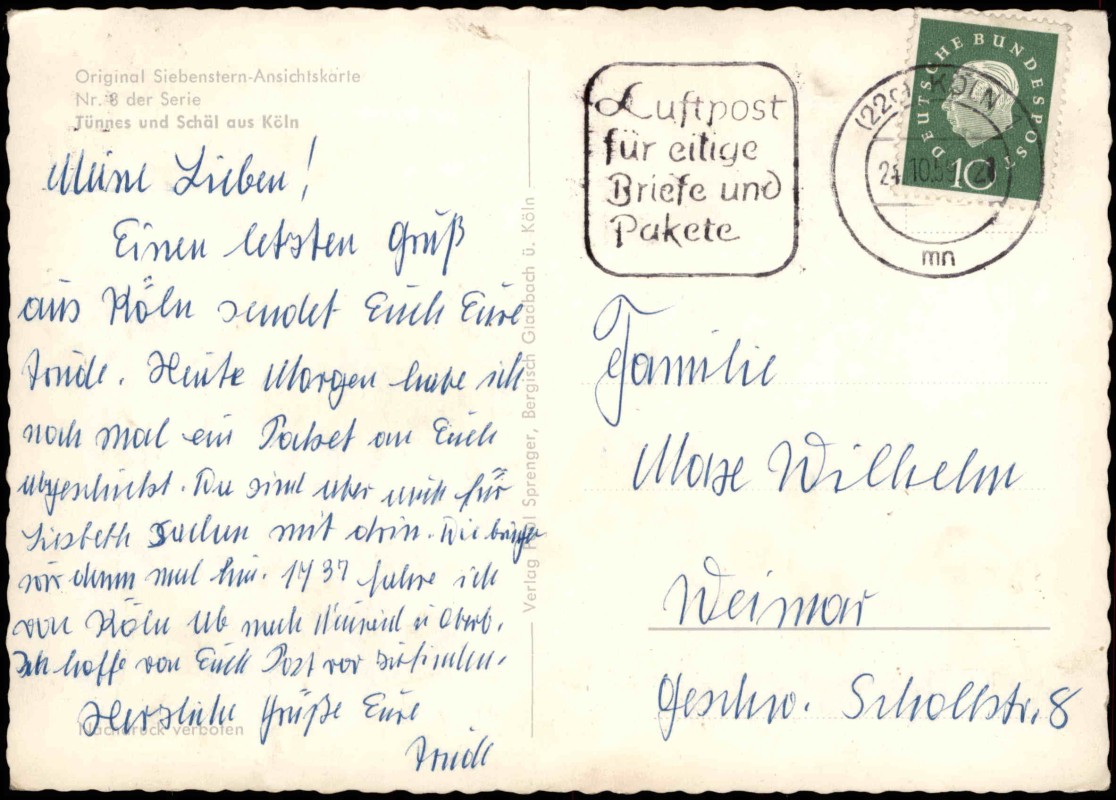 Original Siebenstern-Ansichtskarte
Nr. 8 der Serie
Tünnes und Schäl aus Köln
Meine Lieben!
Einen letzten Gruß
aus Köln sendet Euch Eure
Trude. Heute Morgen habe ich
noch mal ein Paket an Euch
abgeschickt. Da sind aber auch für
Liesbeth Sachen mit drin. Die bringen
wir dann mal hin. 1437 fahre ich
von Köln ab nach Neuwied u Oberb.
Ich hoffe von Euch Post vor zu finden.
Herzliche Grüße Eure
Trude
Nachdruck verboten
Verlag Sprenger, Bergisch Gladbach ü. Köln
Luftpost
für eilige
Briefe und
Pakete
(22c) KÖLN
10.59
mn
DEUTSCHE BUNDESPOST
10
Familie
Max Wilhelm
Weimar
Geschw. Schollstr. 8